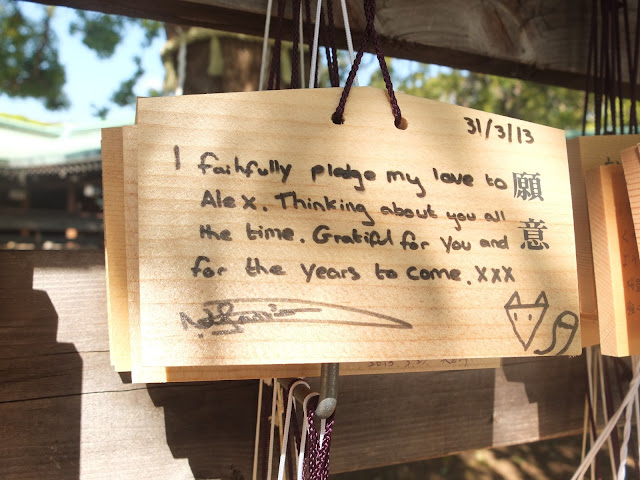 31/3/13
I faithfully pledge my love to
Alex. Thinking about you all
the time. Grateful for you and
for the years to come. xxx
願
意